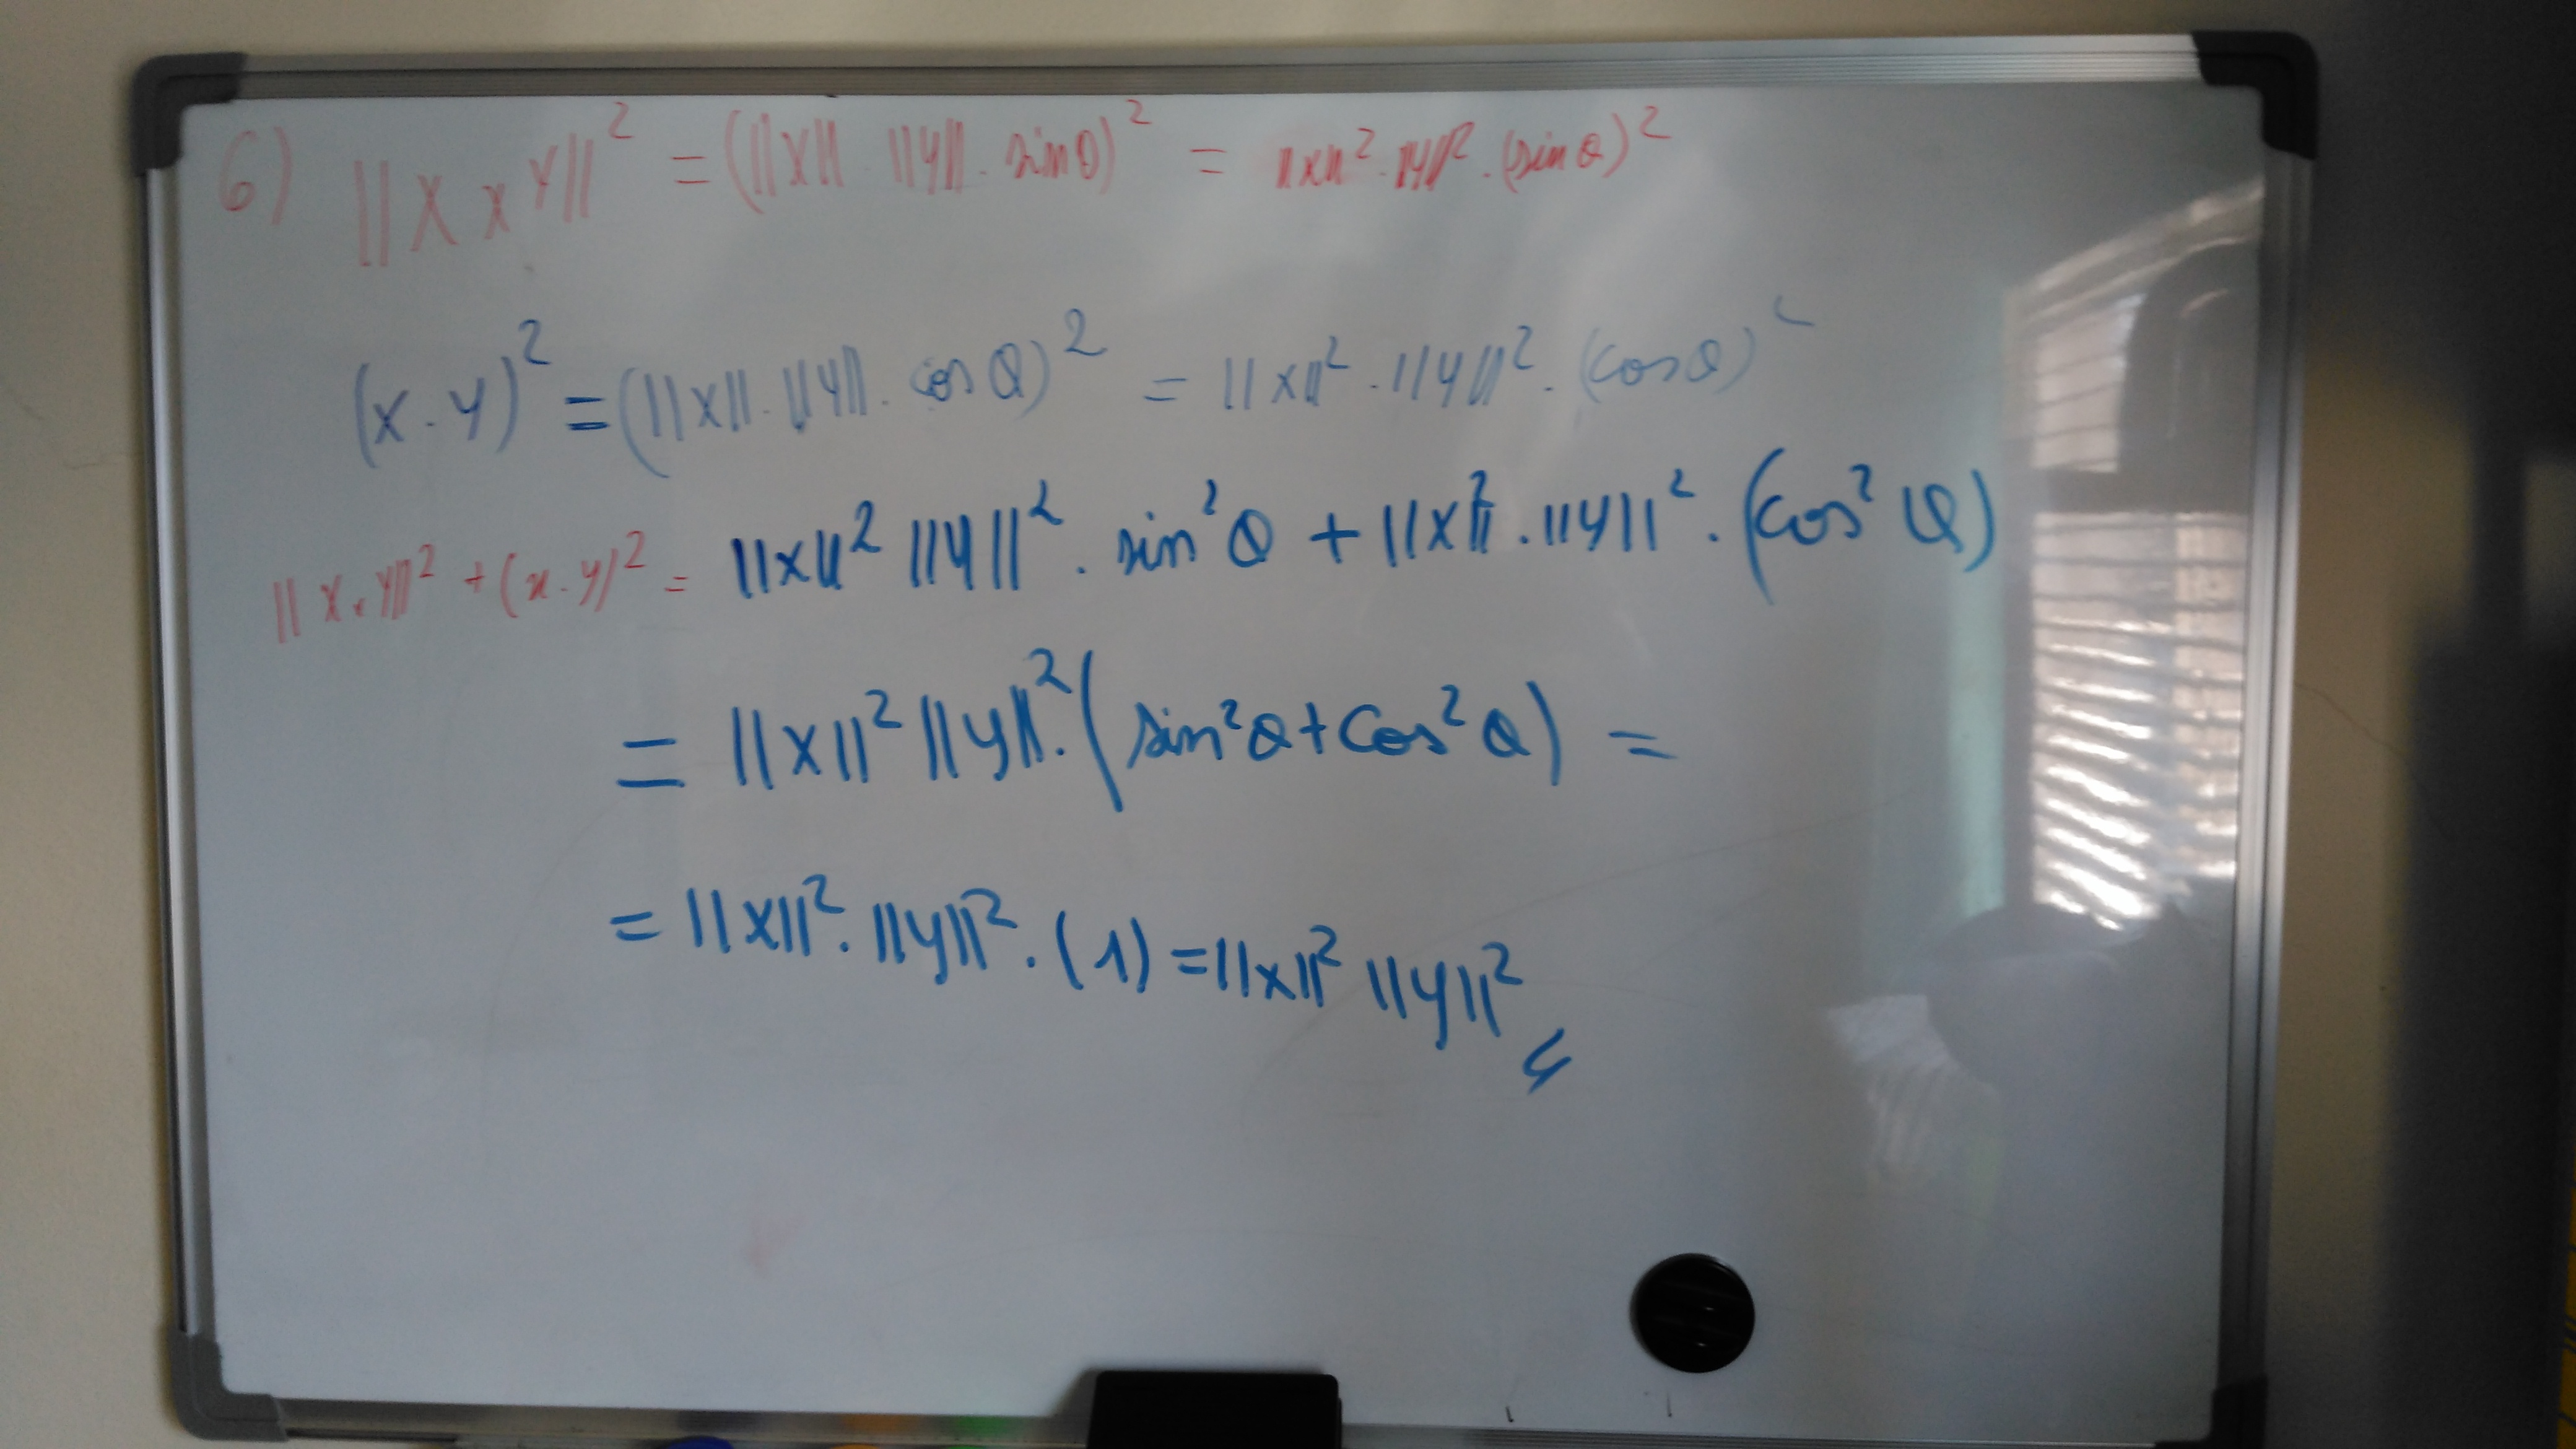 6) ||X x Y||² = (||X||. ||Y||. sin θ)² = ||x||². ||y||². (sin θ)²
(x.y)² = (||x||. ||y||. cos θ)² = ||x||². ||y||². (cos θ)²
||X x Y||² + (x.y)² = ||x||² ||y||². sin² θ + ||x||². ||y||². (cos² θ)
= ||x||² ||y||². (sin² θ + cos² θ) =
= ||x||². ||y||². (1) = ||x||² ||y||²